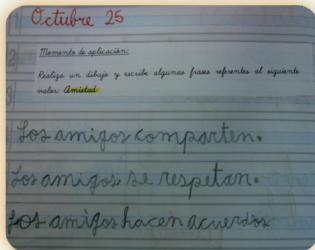 Octubre 25
Momento de aplicación:
Realiza un dibujo y escribe algunas frases referentes al siguiente
valor: Amistad
Los amigos comparten.
Los amigos se respetan.
Los amigos hacen acuerdos